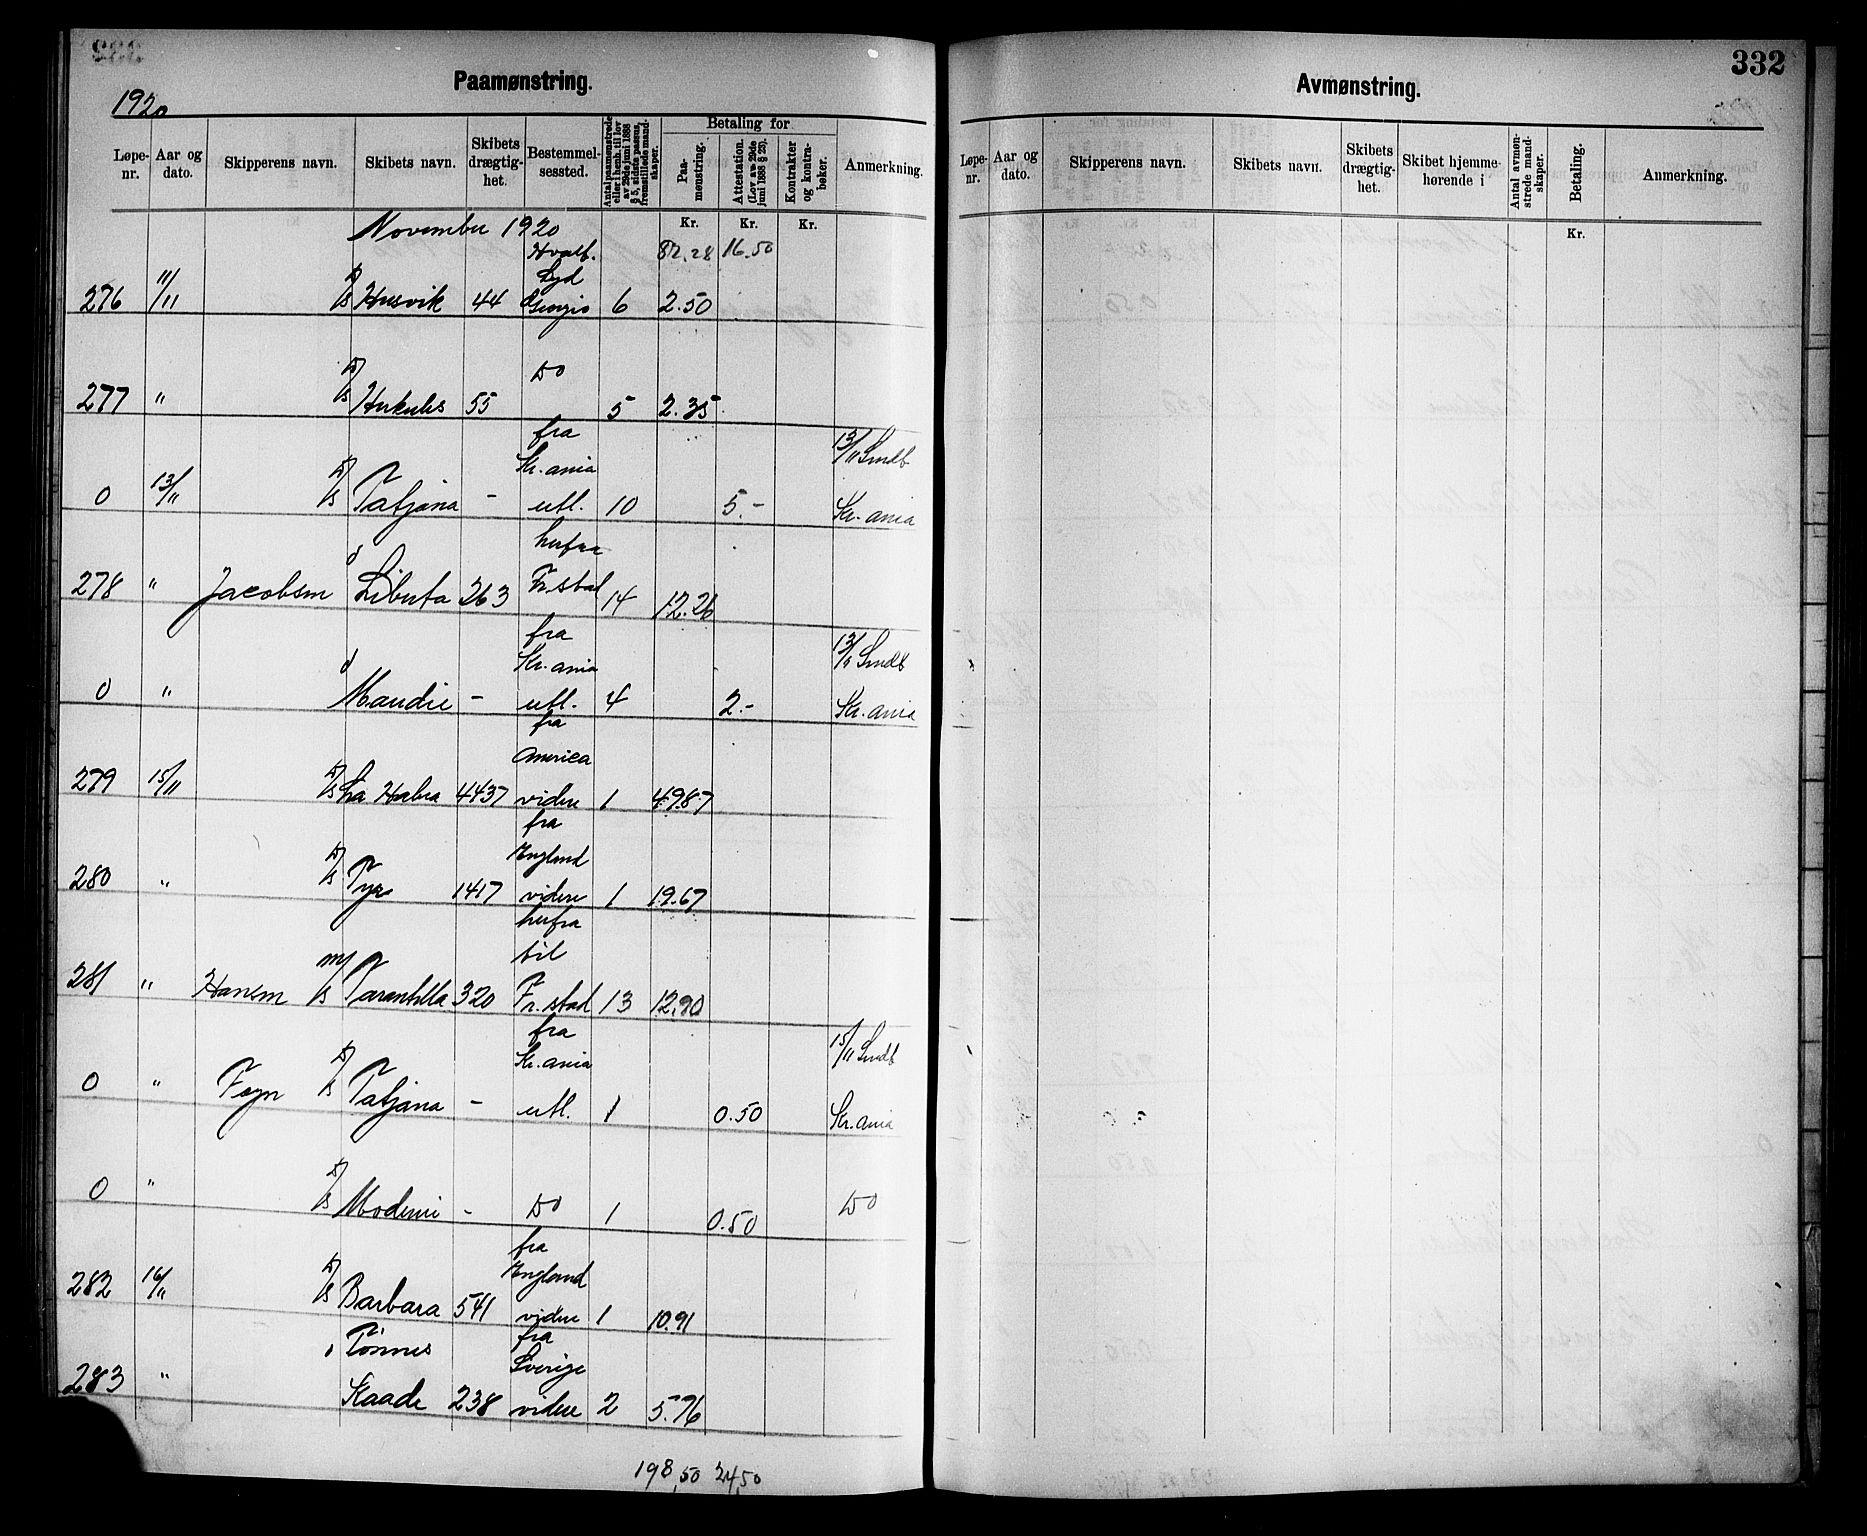 332
Paamønstring.
1920
Løpe-nr. Aar og dato. Skipperens navn. Skibets navn. Skibets drægtig-het. Bestemmel-sessted. Antal paamønstrede eller i henh. til lov av 29de juni 1888 § 5, sidste passus, fremstillede mand-skaper. Betaling for Paa-mønstring. Attestation. (Lov av 29de juni 1888 § 23). Kontrakter og kontra-bøker. Anmerkning.
Kr. Kr. Kr.
November 1920
Hvalf. 82.28 16.50
Syd
276 11/11 D/S Husvik 44 Georgia 6 2.50
277 " D/S Herkules 55 Do 5 2.35
fra
Kr.ania 13/11 Smdb
0 13/11 D/S Tatjana - utl. 10 5.- Kr. ania
herfra
278 " Jacobsen Liberta 263 Fr.stad 14 12.26
fra
Kr.ania 13/11 Smdb
0 " Maudie - utl. 4 2.- Kr. ania
fra
America
279 15/11 D/S La Habra 4437 videre 1 49.87
fra
England
280 " D/S Tyr 1417 videre 1 19.67
herfra
til
281 " Hansen M/S Tarantella 320 Fr.stad 13 12.90
fra
Kr.ania 15/11 Smdb
0 " Foyn D/S Tatjana - utl. 1 0.50 Kr.ania
0 " D/S Modemi - Do 1 0.50 Do
fra
England
282 16/11 D/S Barbara 541 videre 1 10.91
Tønnes fra
Sverige
283 " Kaade 238 videre 2 5.76
198,50 24,50
Avmønstring.
Løpe-nr. Aar og dato. Skipperens navn. Skibets navn. Skibets drægtig-het. Skibet hjemme-hørende i Antal avmøn-strede mand-skaper. Betaling. Anmerkning.
Kr.